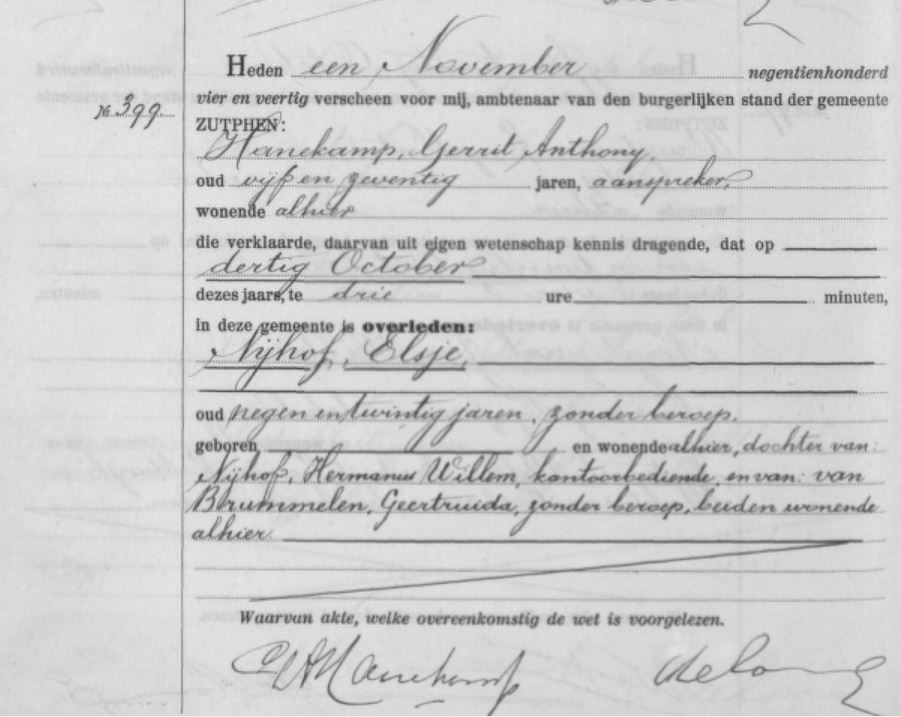 Heden een November negentienhonderd
vier en veertig verscheen voor mij, ambtenaar van den burgerlijken stand der gemeente
№ 399
ZUTPHEN:
Hanekamp, Gerrit Anthony,
oud vijf en zeventig jaren, aanspreker,
wonende alhier
die verklaarde, daarvan uit eigen wetenschap kennis dragende, dat op
dertig October
dezes jaars, te drie ure minuten,
in deze gemeente is overleden:
Nijhof, Elsje,
oud negen en twintig jaren, zonder beroep,
geboren en wonende alhier, dochter van:
Nijhof, Hermanus Willem, kantoorbediende, en van: van
Brummelen, Geertruida, zonder beroep, beiden wonende
alhier.
Waarvan akte, welke overeenkomstig de wet is voorgelezen.
GAHanekamp